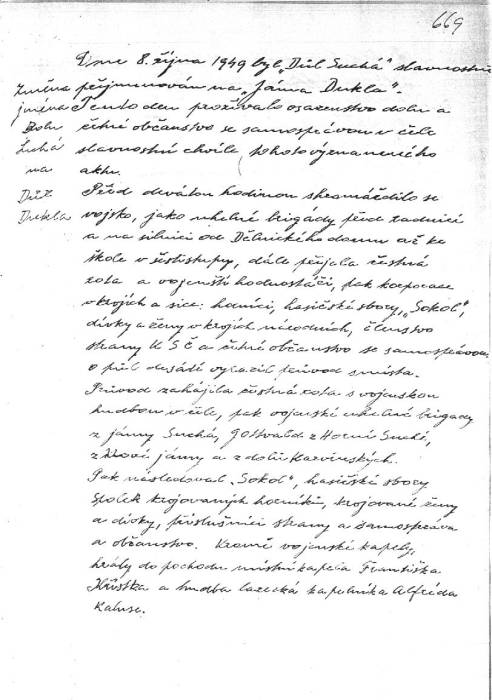 669
Dne 8. října 1949 byl „Důl Suchá" slavnostně
Změna přejmenován na „Jáma Dukla".
jména Tento den prožívalo osazenstvo dolu a
Dolu četné občanstvo se samosprávou v čele
Suchá slavnostní chvíle, tohoto významného
na aktu.
Důl Před devátou hodinou shromáždilo se
Dukla vojsko, jako uhelné brigády před radnicí
a na silnici od Dělnického domu až ke
škole v šestistupy, dále přijela čestná
rota a vojenští hodnostáři, pak korporace
v krojích a sice: horníci, hasičské sbory, „Sokol",
dívky a ženy v krojích národních, členstvo
strany KSČ a četné občanstvo se samosprávou
o půl desáté vyrazil průvod z místa.
Průvod zahájila čestná rota s vojenskou
hudbou v čele, pak vojenské uhelné brigády
z jámy Suchá, Gottwald z Horní Suché,
z Nové jámy a z dolů Karvinských.
Pak následoval „Sokol", hasičské sbory
Spolek krojovaných horníků, krojované ženy
a dívky, příslušníci strany a samospráva
a občanstvo. Kromě vojenské kapely,
hrály do pochodu místní kapela Františka
a hudba lazecká kapelníka Alfréda